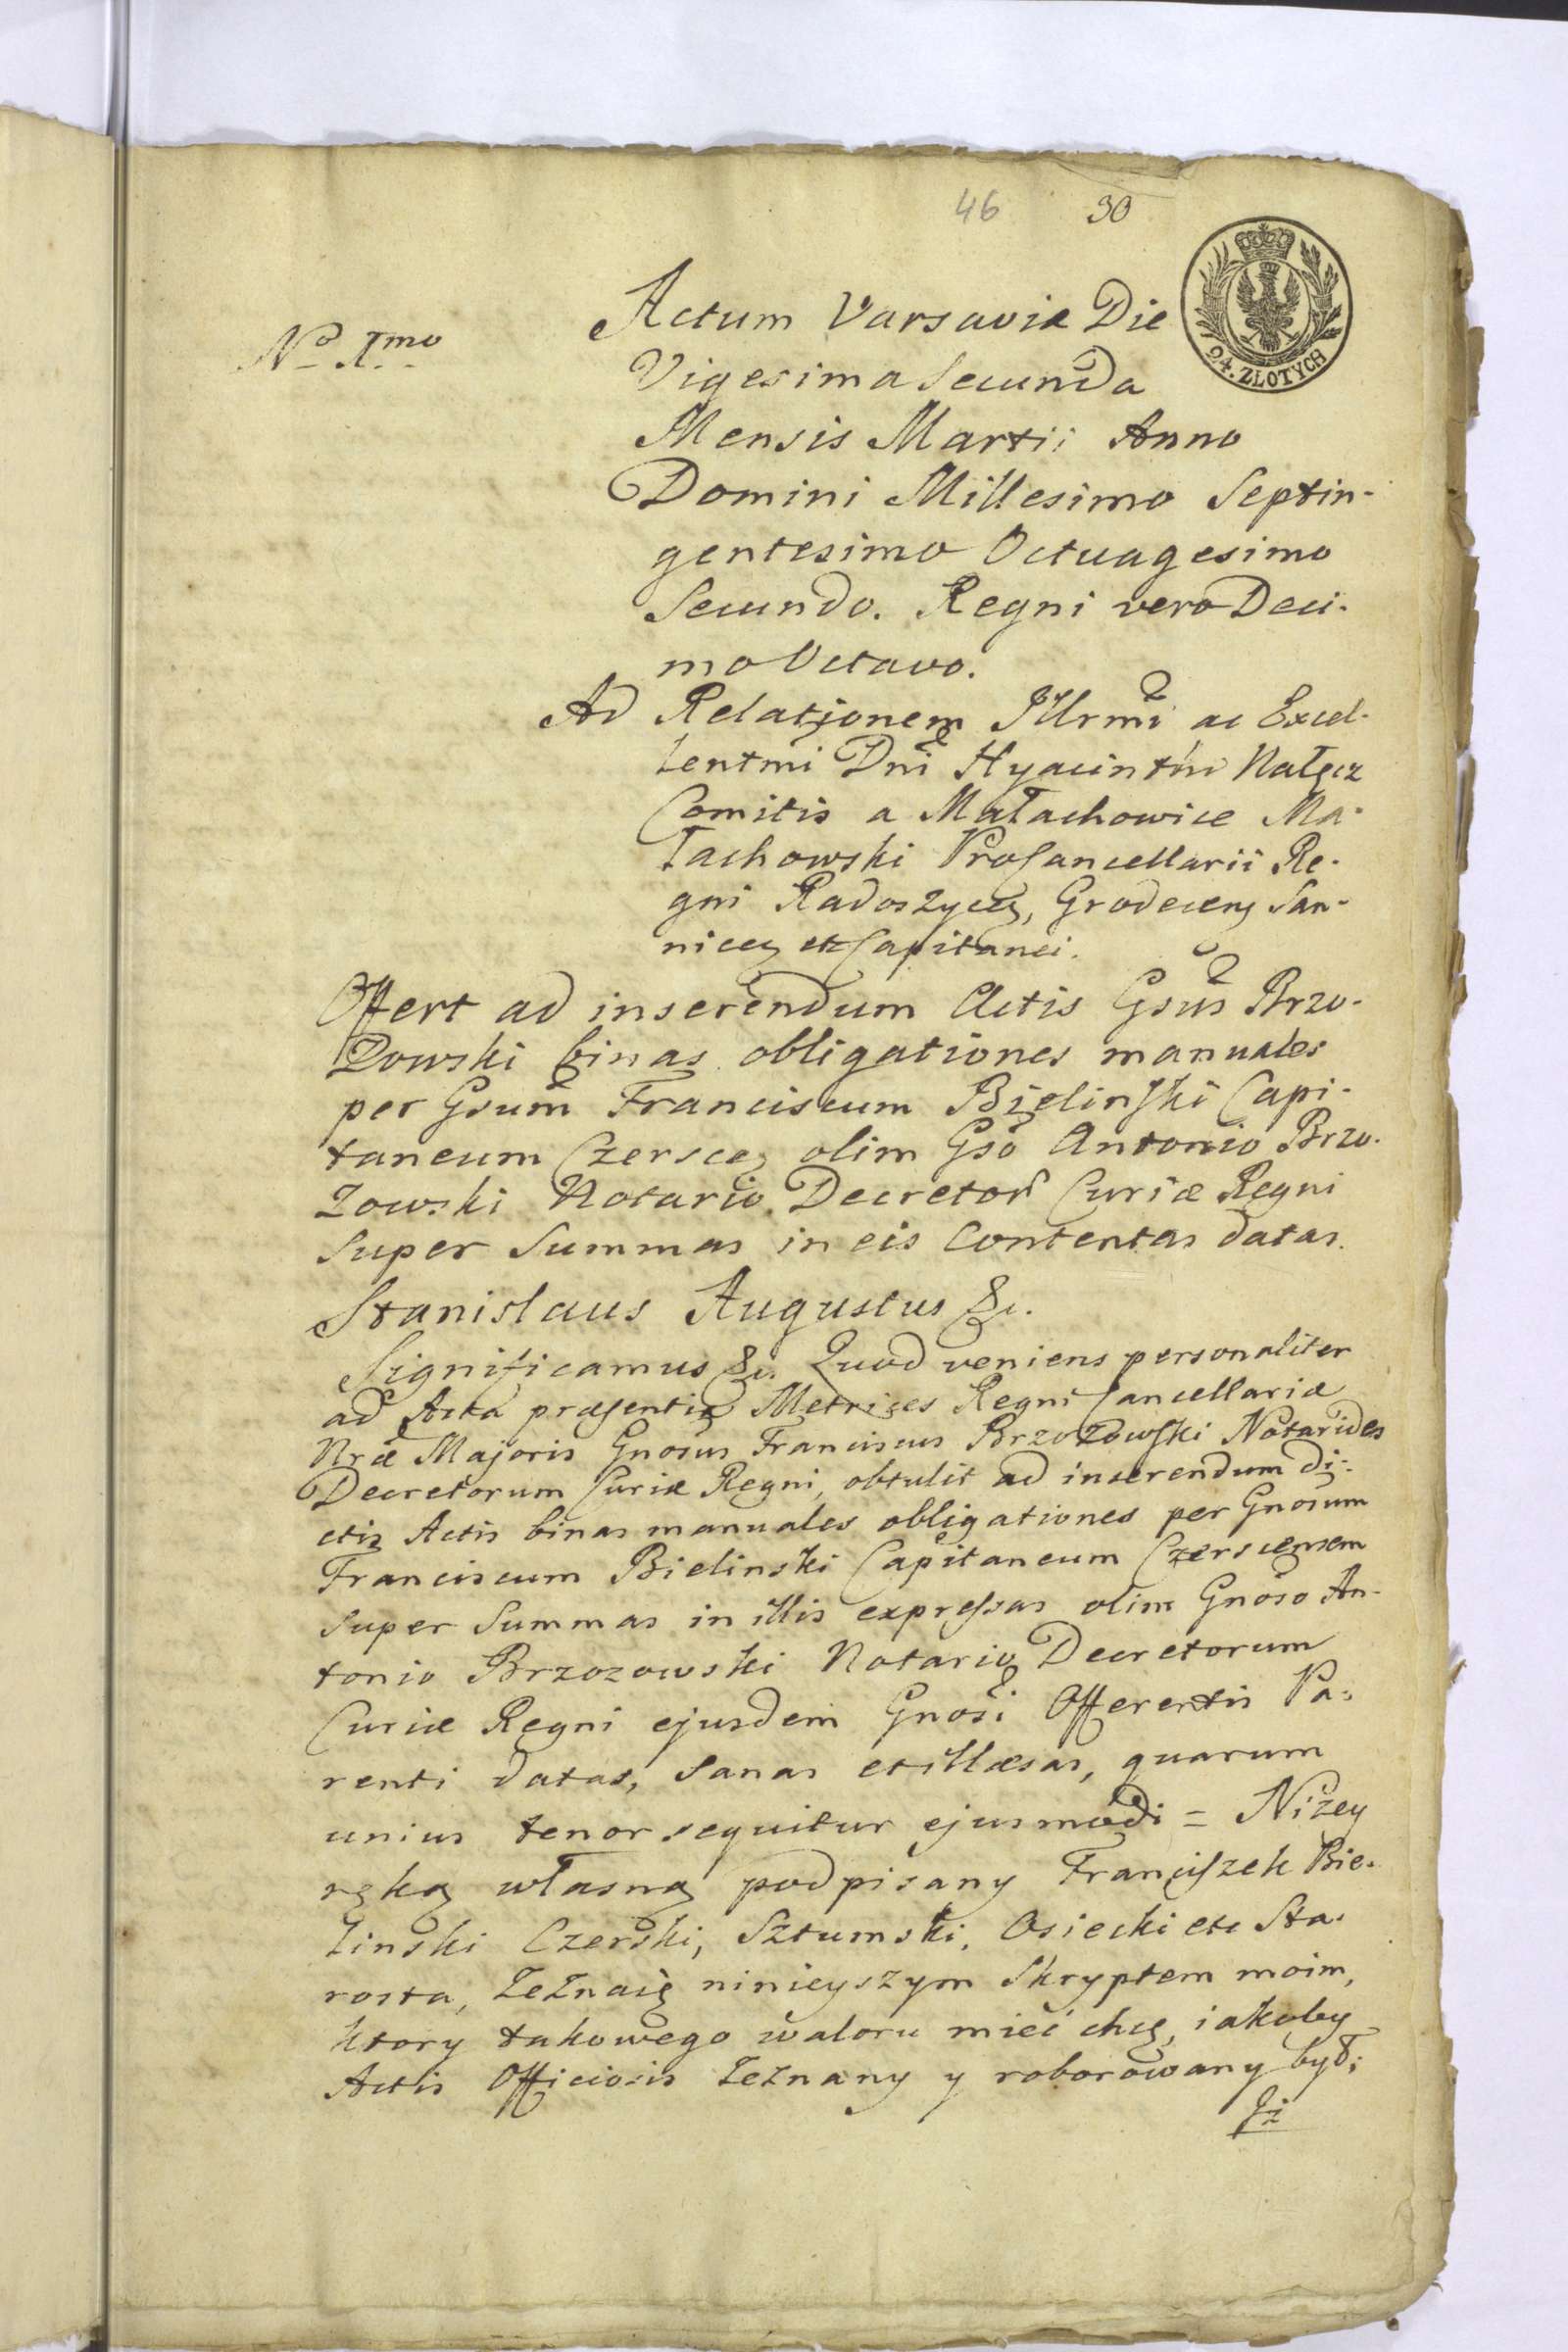 46 30
94. ZŁOTYCH
No Imo
Actum Varsaviæ Die
Vigesima Secunda
Mensis Martii Anno
Domini Millesimo Septin-
gentesimo Octuagesimo
Secundo. Regni vero Deci-
mo Octavo.
Ad Relationem Illrmi ac Excel-
lentmi Dni Hyacinthi Nałęcz
Comitis a Małachowice Ma-
łachowski ProCancellarii Re-
gni Radoszyceń, Grodeceń San-
niceń etc Capitanei.
Offert ad inserendum Actis Gsus Brzo-
zowski binas obligationes manuales
per Gsum Franciscum Bielinski Capi-
taneum Czersceń olim Gso Antonio Brzo-
zowski Notario Decretor Curiæ Regni
super Summas in eis Contentas datas.
Stanislaus Augustus &c.
Significamus &c. Quod veniens personaliter
ad Acta præsentia Metrices Regni Cancellariæ
Nræ Majoris Gnosus Franciscus Brzozowski Notarides
Decretorum Curiæ Regni, obtulit ad inserendum di-
ctis Actis binas manuales obligationes per Gnosum
Franciscum Bielinski Capitaneum Czerscensem
super Summas in illis expressas olim Gnoso An-
tonio Brzozowski Notario Decretorum
Curiæ Regni ejusdem Gnosi Offerentis Pa-
renti datas, sanas et illæsas, quarum
unius tenor sequitur ejusmodi = Niżey
ręką własną podpisany Franciszek Bie-
linski Czerski, Sztumski, Osiecki etc Sta-
rosta, zeznaię ninieyszym Skryptem moim,
ktory takowego waloru mieć chcę, iakoby
Actis Officiosis zeznany y roborowany był;
Jż